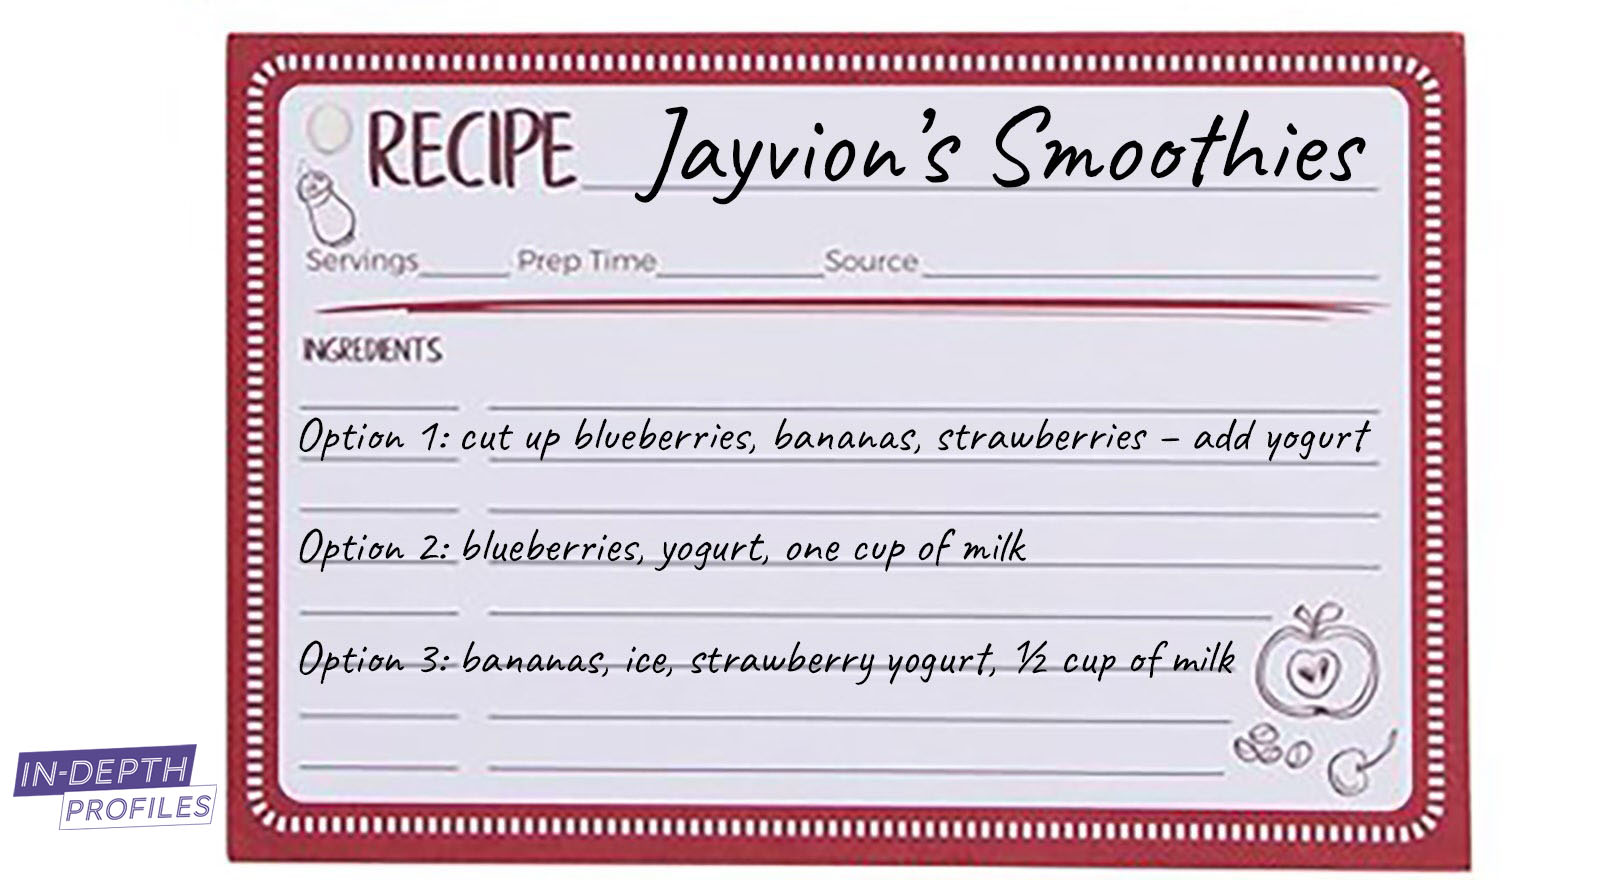 RECIPE Jayvion's Smoothies
Servings Prep Time Source
INGREDIENTS
Option 1: cut up blueberries, bananas, strawberries – add yogurt
Option 2: blueberries, yogurt, one cup of milk
Option 3: bananas, ice, strawberry yogurt, ½ cup of milk
IN-DEPTH
PROFILES